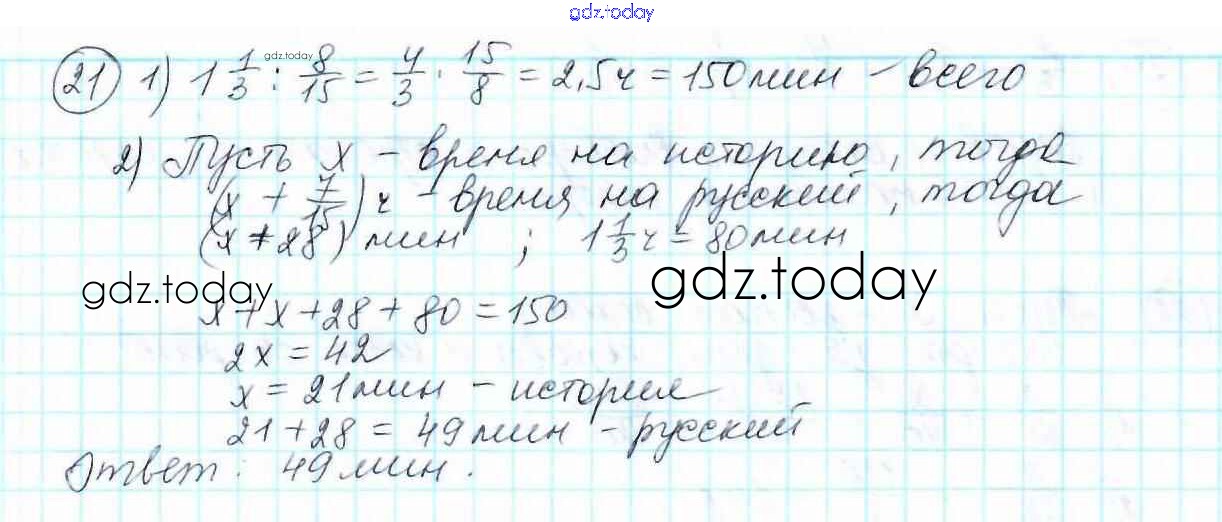 gdz.today
21 1) 1 1/3 : 8/15 = 4/3 · 15/8 = 2,5ч = 150мин – всего
gdz.today
2) Пусть x – время на историю, тогда
(x + 7/15) ч – время на русский, тогда
(x + 28) мин ; 1 1/3 ч = 80мин
gdz.today
gdz.today
x + x + 28 + 80 = 150
2x = 42
x = 21мин – история
21 + 28 = 49мин – русский
Ответ: 49мин.